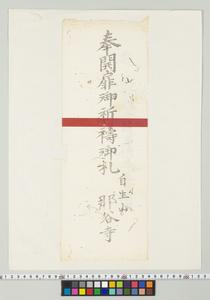 奉開扉御祈祷御札
自生山
那谷寺